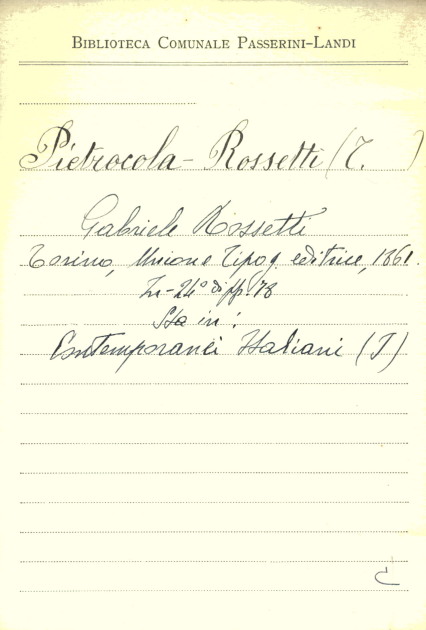 BIBLIOTECA COMUNALE PASSERINI-LANDI
Pietrocola-Rossetti (T. )
Gabriele Rossetti
Torino, Unione Tipog. editrice, 1861.
In-24° di pp. 78
Sta in:
Contemporanei Italiani (I)
C